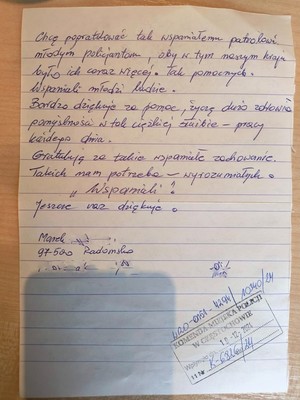 Chcę pogratulować tak wspaniałemu patrolowi
młodym policjantom, aby w tym naszym kraju
było ich coraz więcej. Tak pomocnych.
Wspaniali młodzi ludzie.
Bardzo dziękuję za pomoc, życzę dużo zdrowia
pomyślności w tak ciężkiej służbie - pracy
każdego dnia.
Gratuluję za takie wspaniałe zachowanie.
Takich nam potrzeba - wyrozumiałych.
"Wspaniali".
Jeszcze raz dziękuję.
Marek
97-500 Radomsko
KOMENDA MIEJSKA POLICJI
W CZĘSTOCHOWIE